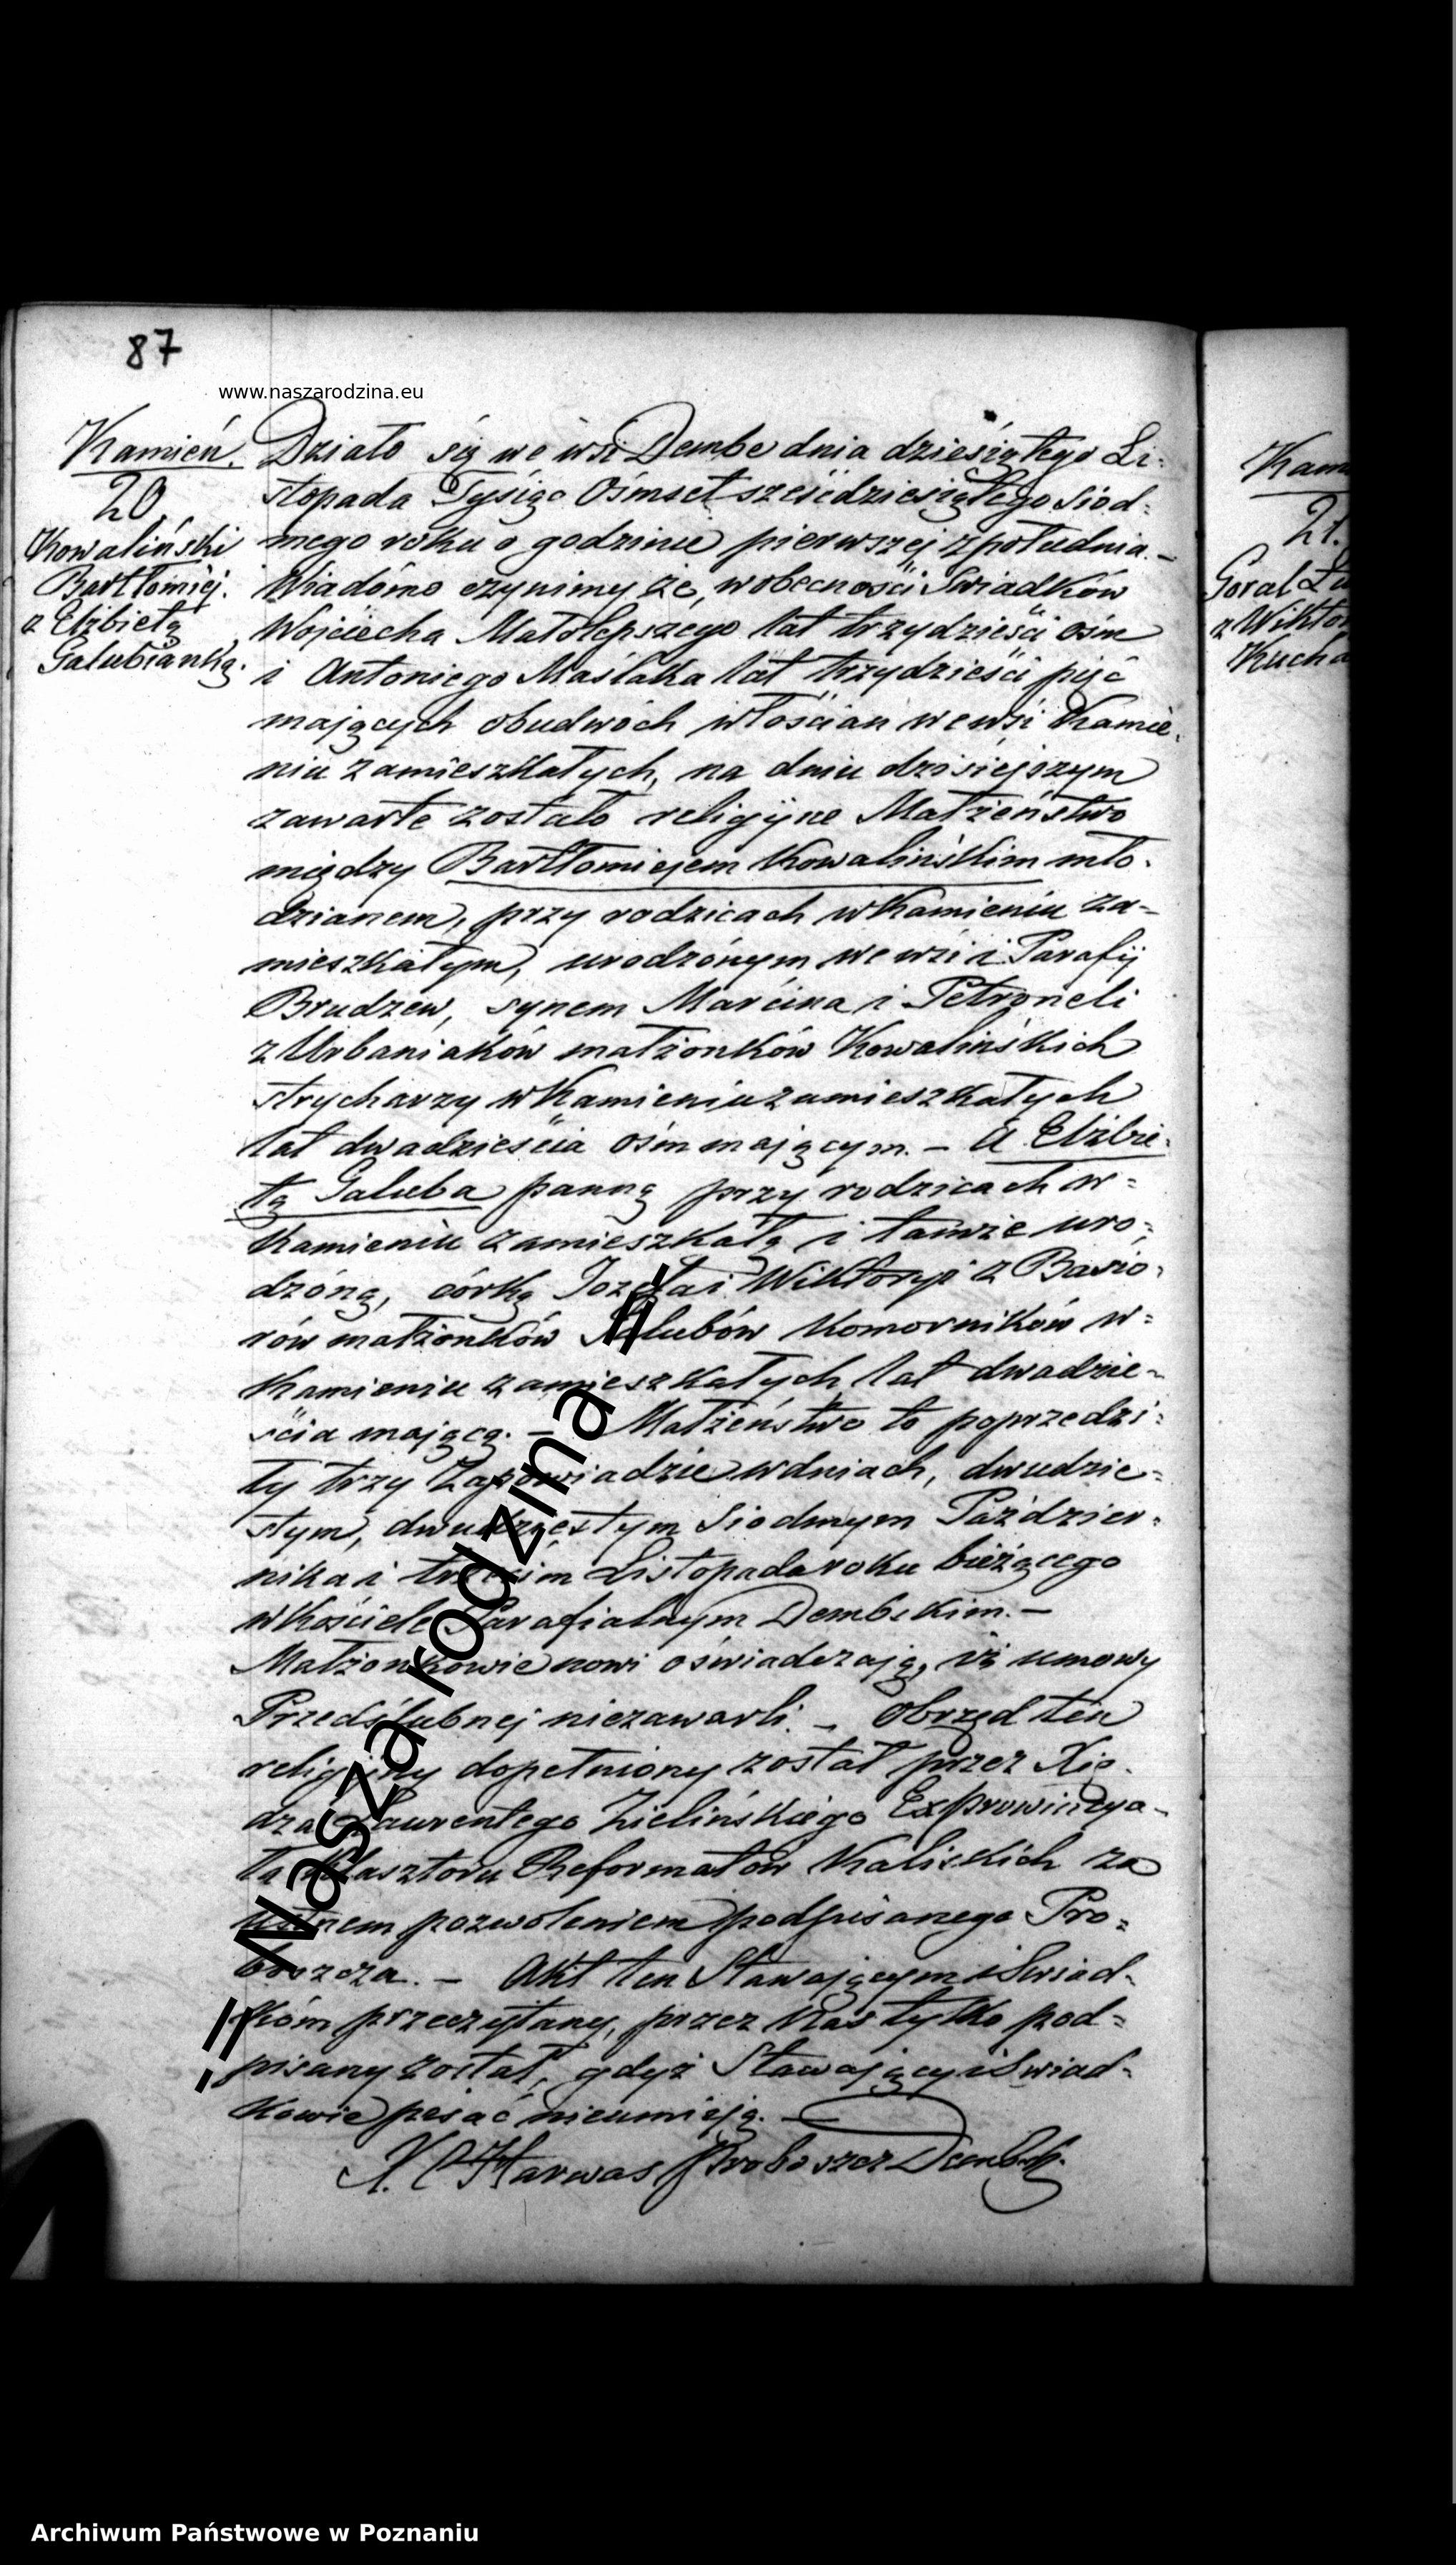 87
www.naszarodzina.eu
Kamień.
20
Kowaliński
Bartłomiej.
z Elżbietą
Galubianką.
Działo się we wsi Dembe dnia dziesiątego Li-
stopada Tysiąc Ośmset sześćdziesiątego siód-
mego roku o godzinie pierwszej z południa. –
Wiadomo czynimy że, w obecności Świadków
Wojciecha Małolepszego lat trzydzieści ośm
i Antoniego Maślaka lat trzydzieści pięć
mających obudwóch włościan we wsi Kamie-
niu zamieszkałych, na dniu dzisiejszym
zawarte zostało religijne Małżeństwo
między Bartłomiejem Kowalińskim mło-
dzianem, przy rodzicach w Kamieniu za-
mieszkałym, urodzonym we wsi i Parafij
Brudzew, synem Marcina i Petroneli
z Urbaniaków małżonków Kowalińskich
strycharzy w Kamieniu zamieszkałych
lat dwadzieścia ośm mającym. – a Elżbie-
tą Galuba panną przy rodzicach w-
Kamieniu zamieszkałą i tamże uro-
dzoną, córką Józefa i Wiktoryi z Basio-
rów małżonków Galubów Komorników w-
Kamieniu zamieszkałych lat dwadzie-
ścia mającą. – Małżeństwo to poprzedzi-
ły trzy Zapowiadzie w dniach, dwudzie-
stym, dwudziestym Siodmym Paździer-
nika i trzecim Listopada roku bieżącego
w Kościele Parafialnym Dembskim. –
Małżonkowie nowi oświadczają, iż umowy
Przedślubnej niezawarli. – Obrzęd ten
religijny dopełniony został przez Xię-
dza Laurentego Zielińskiego Exprowincya-
ła Klasztoru Reformatów Kaliskich za
ustnem pozwoleniem podpisanego Pro-
boszcza. – Akt ten Stawającym i Świad-
kóm przeczytany, przez Nas tylko pod-
pisany został, gdyż Stawający i Świad-
kowie pisać nieumieją. –
X. Harwas Proboszcz Dembsk.
Kam
21.
Goral Lu
z Wiktor
Kucha
-|| Nasza rodzina ||-
Archiwum Państwowe w Poznaniu